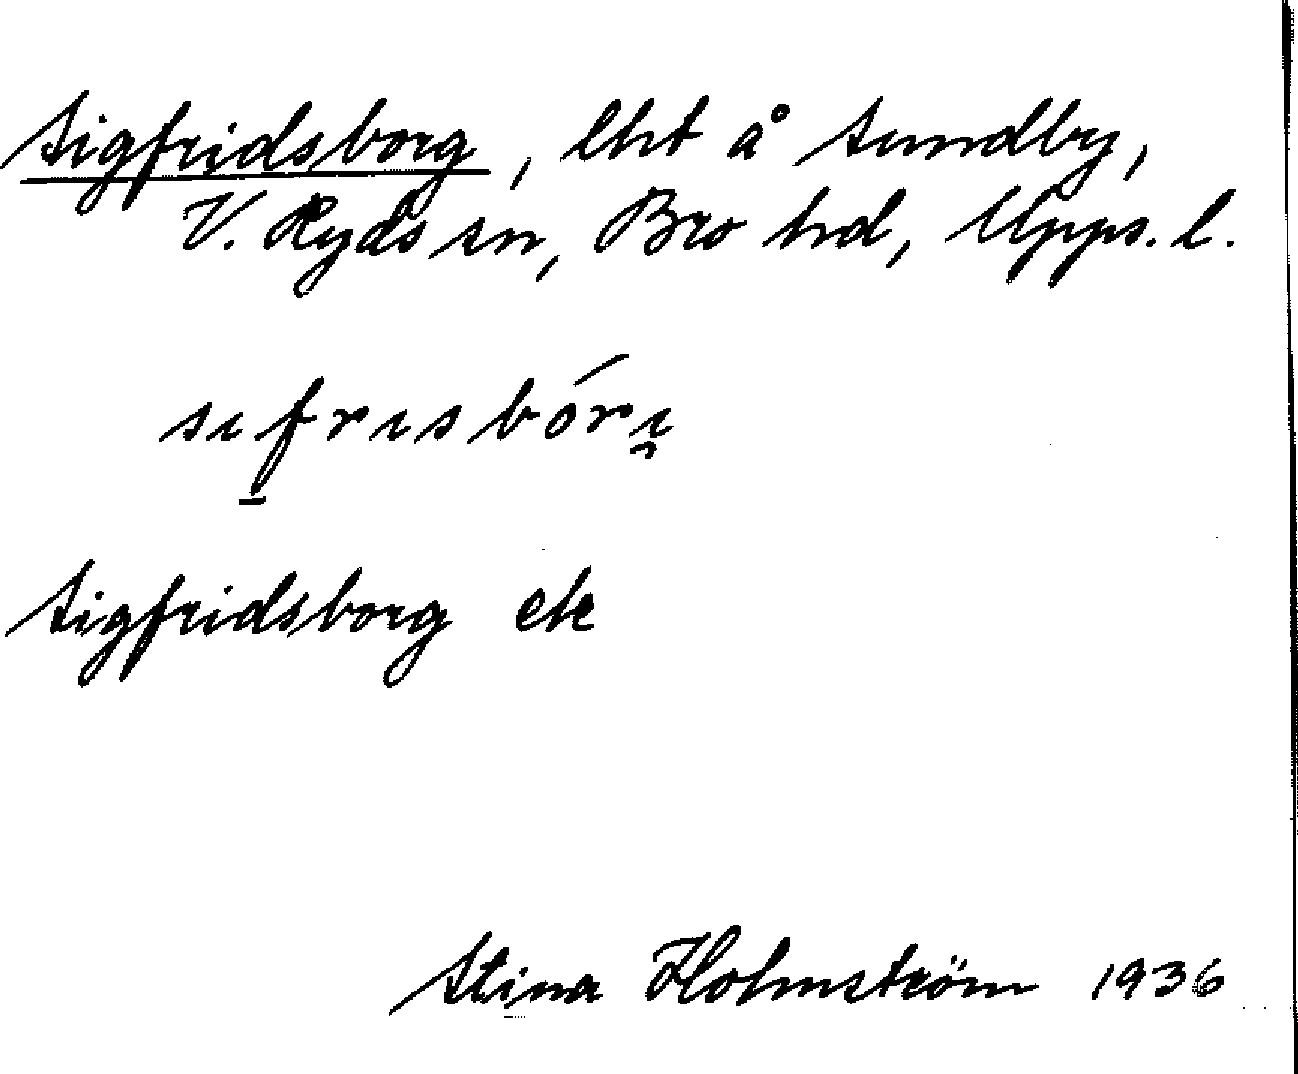 Sigfridsborg, lht å Sundby,
V. Ryds sn, Bro hd, Upps. l.
sıf̱rısbórı̯
Sigfridsborg ek
Stina Holmström 1936